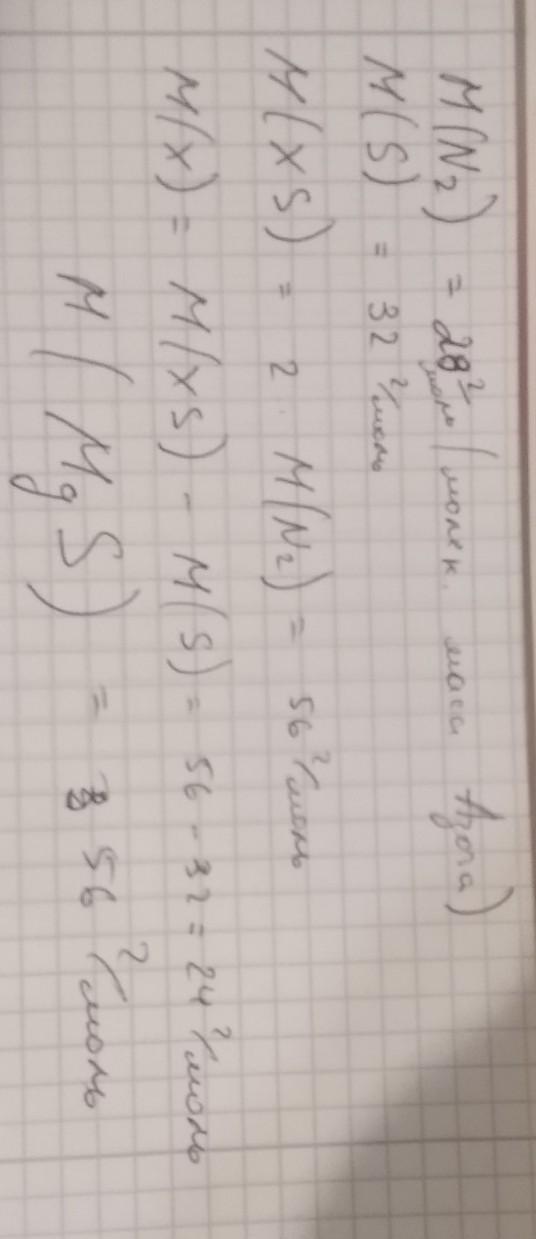 M(N₂) = 28 г/моль (молек. маса Азота)
M(S) = 32 г/моль
M(XS) = 2 · M(N₂) = 56 г/моль
M(X) = M(XS) - M(S) = 56 - 32 = 24 г/моль
M(MgS) = 56 г/моль